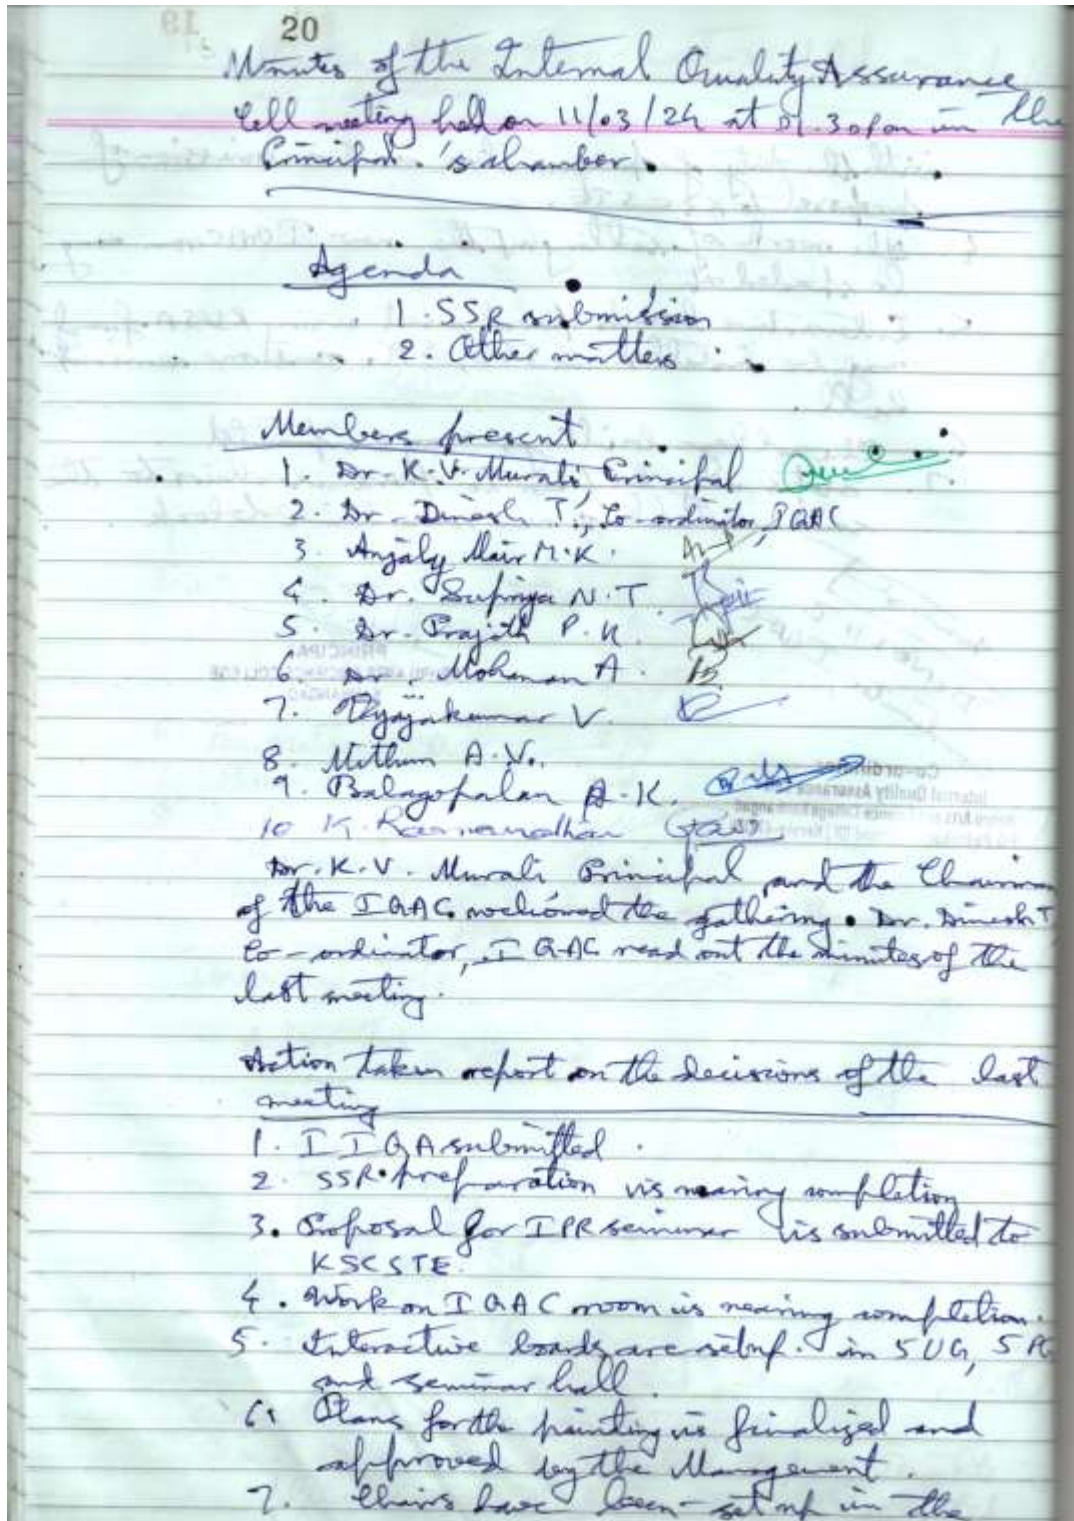 20
Minutes of the Internal Quality Assurance
Cell meeting held on 11/03/24 at 01.30pm in the
Principal's chamber.
Agenda
1. SSR submission
2. Other matters
Members present
1. Dr. K.V. Murali, Principal
2. Dr. Dinesh T., Co-ordinator, IQAC
3. Anjaly Nair M.K.
4. Dr. Supriya N.T.
5. Dr. Prajith P.K.
6. Dr. Mohanan A.
7. Vijayakumar V.
8. Mithun A.V.
9. Balagopalan A.K.
10 K. Ramanathan
Dr. K.V. Murali Principal and the Chairman
of the IQAC welcomed the gathering. Dr. Dinesh T
Co-ordinator, IQAC read out the minutes of the
last meeting.
Action taken report on the decisions of the last
meeting
1. IIQA submitted.
2. SSR preparation is nearing completion
3. Proposal for IPR seminar is submitted to
KSCSTE.
4. Work on IQAC room is nearing completion.
5. Interactive boards are setup in 5 UG, 5 PG
and seminar hall.
6. Plans for the painting is finalized and
approved by the Management.
7. Chairs have been set up in the